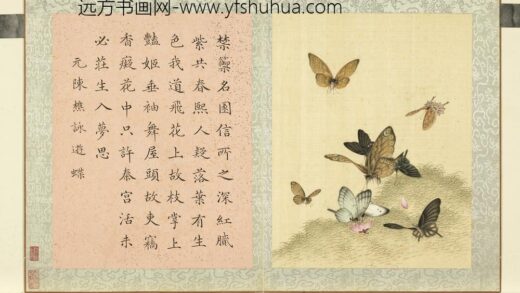 远方书画网-www.yfshuhua.com
禁籞名園信所之深紅膩
紫共春熙人疑落葉有生
色我道飛花上故枝掌上
豔姬垂袖舞屋頭故吏竊
香癡花中只許秦宮活未
必莊生入夢思
元陳樵詠遊蝶